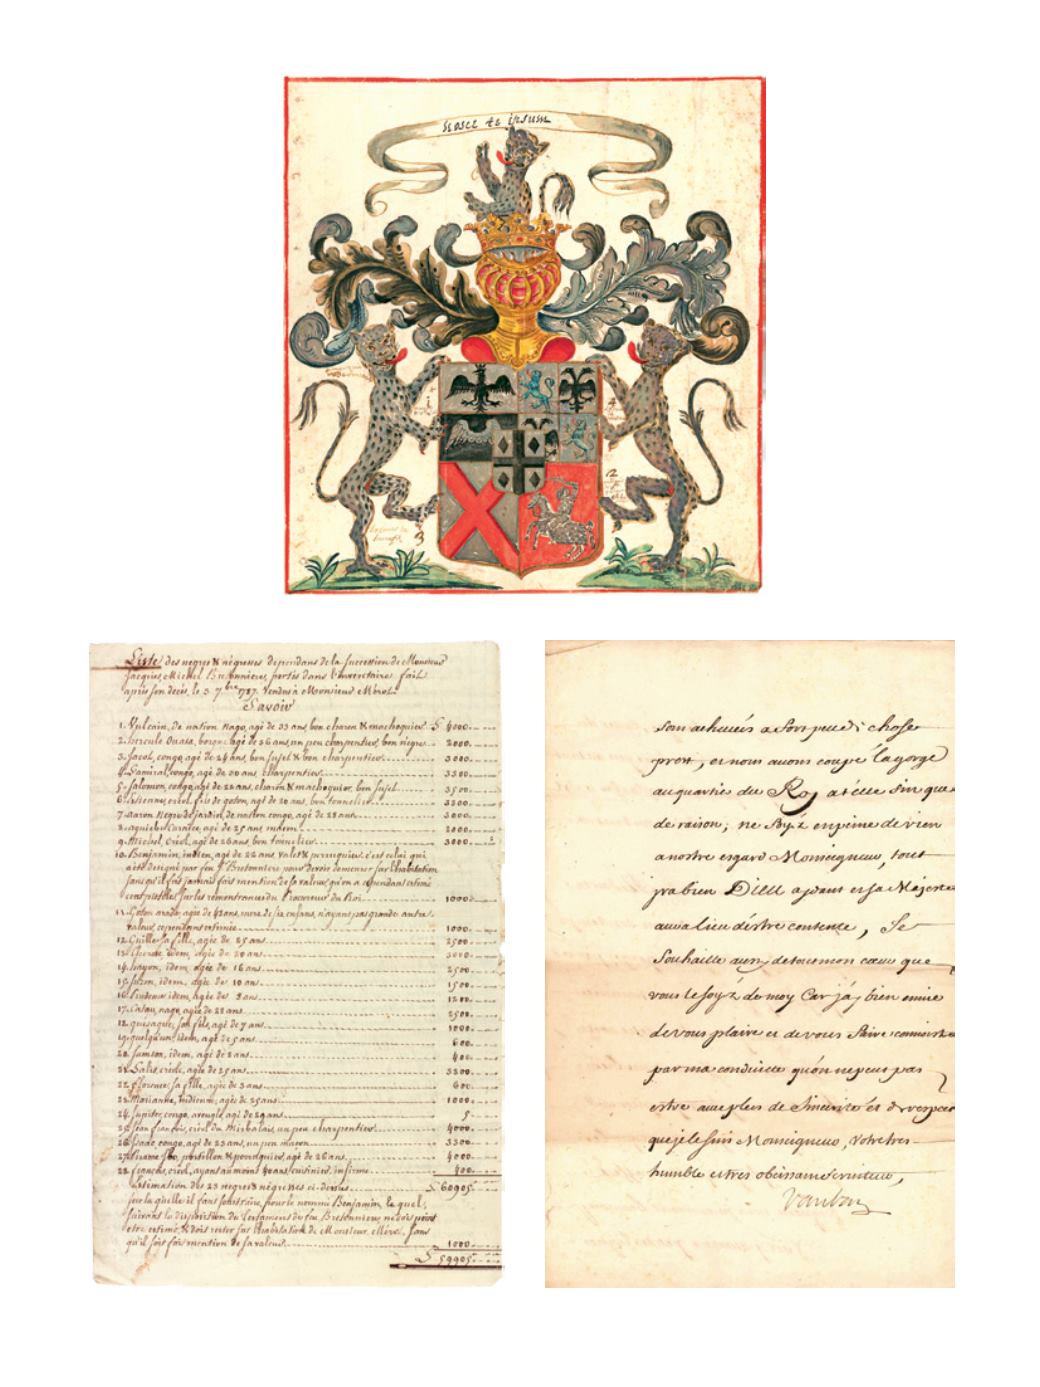 nosce te ipsum
1
4
2
3
Liste des negres & négresses dependans de la succession de Monsieur
Jacques Michel Bretonnieres, portés dans l'inventaire fait
après son decés, le 3 7.bre 1787. vendus à Monsieur Merot.
Savoir
1. Vulcain, de nation nago, agé de 33 ans, bon charon & machoquier 4000
2. hercule Ouasa, borgne agé de 36 ans, un peu charpentier, bon negre 2000
3. Jacob, congo, agé de 24 ans, bon sujet & bon charpentier 3000
4. L'amiral, congo, agé de 20 ans charpentier 3300
5. Salomon, congo, agé de 22 ans, charon & machoquier, bon sujet 3500
6. Etienne, créol, fils de goton, agé de 20 ans, bon tonnelier 3300
7. aaron negre de jardin, de nation congo, agé de 28 ans 3000
8. agé de 25 ans 2000
9. Michel, créol, agé de 26 ans, bon tonnelier 3000
10. Benjamin, indien, agé de 22 ans, valet & perruquier, c'est celui qui
a été designé par feu S. Bretonniere pour devoir demeurer sur l'habitation
sans qu'il fût jamais fait mention de sa valeur, qu'on a cependant estimé
cent pistoles sur les remontrances du Procureur du Roi 1000
11. Goton arada, agée de 42 ans, mere de six enfans, n'ayant pas grande autre
valeur, cependant estimée 1000
12. sa fille, agée de 25 ans 2500
13. idem, agée de 20 ans 3000
14. idem, agée de 16 ans 2500
15. Suzon, idem, agée de 10 ans 1500
16. idem, agée de 8 ans 1200
17. Catau, nago, agée de 28 ans 2500
18. son fils, agé de 7 ans 1000
19. quelqu'un, idem, agé de 5 ans 600
20. Samson, idem, agé de 2 ans 400
21. créole, agée de 25 ans 3300
22. Florence sa fille, agée de 3 ans 600
23. Marianne, indienne, agée de 25 ans 1000
24. Jupiter, congo, aveugle, agé de 29 ans 5
25. Jean françois, créol du Mirbalais, un peu charpentier 4000
26. Isaac, congo, agé de 23 ans, un peu macon 3300
27. postillon & perruquier, agé de 26 ans 4000
28. francois, créol, ayant au moins 40 ans, cuisinier, infirme 400
estimation des 23 negres & négresses ci-dessus 60905
sur la quelle il faut soustraire, pour le nommé Benjamin, le quel,
suivant la disposition du testament du feu Bretonniere ne doit point
etre estimé, & doit rester sur l'habitation de Monsieur Merot, sans
qu'il soit fait mention de sa valeur 1000
59905
son achevées a fort peu de chose
prest, et nous avons coupé la gorge
au quartier du Roy a telle fin que
de raison; ne soyéz en peine de rien
a nostre esgard Monseigneur, tout
ira bien Dieu aydant et sa Majesté
aura lieu d'éstre contente, Je
souhaitte aussy de tout mon coeur que
vous le soyéz de moy Car j'áy bien envie
de vous plaire et de vous faire connoistre
par ma conduitte qu'on ne peut pas
estre avec plus de sincerité et de respect
que je le suis Monseigneur, vostre tres
humble et tres obeissant serviteur,
Vauban